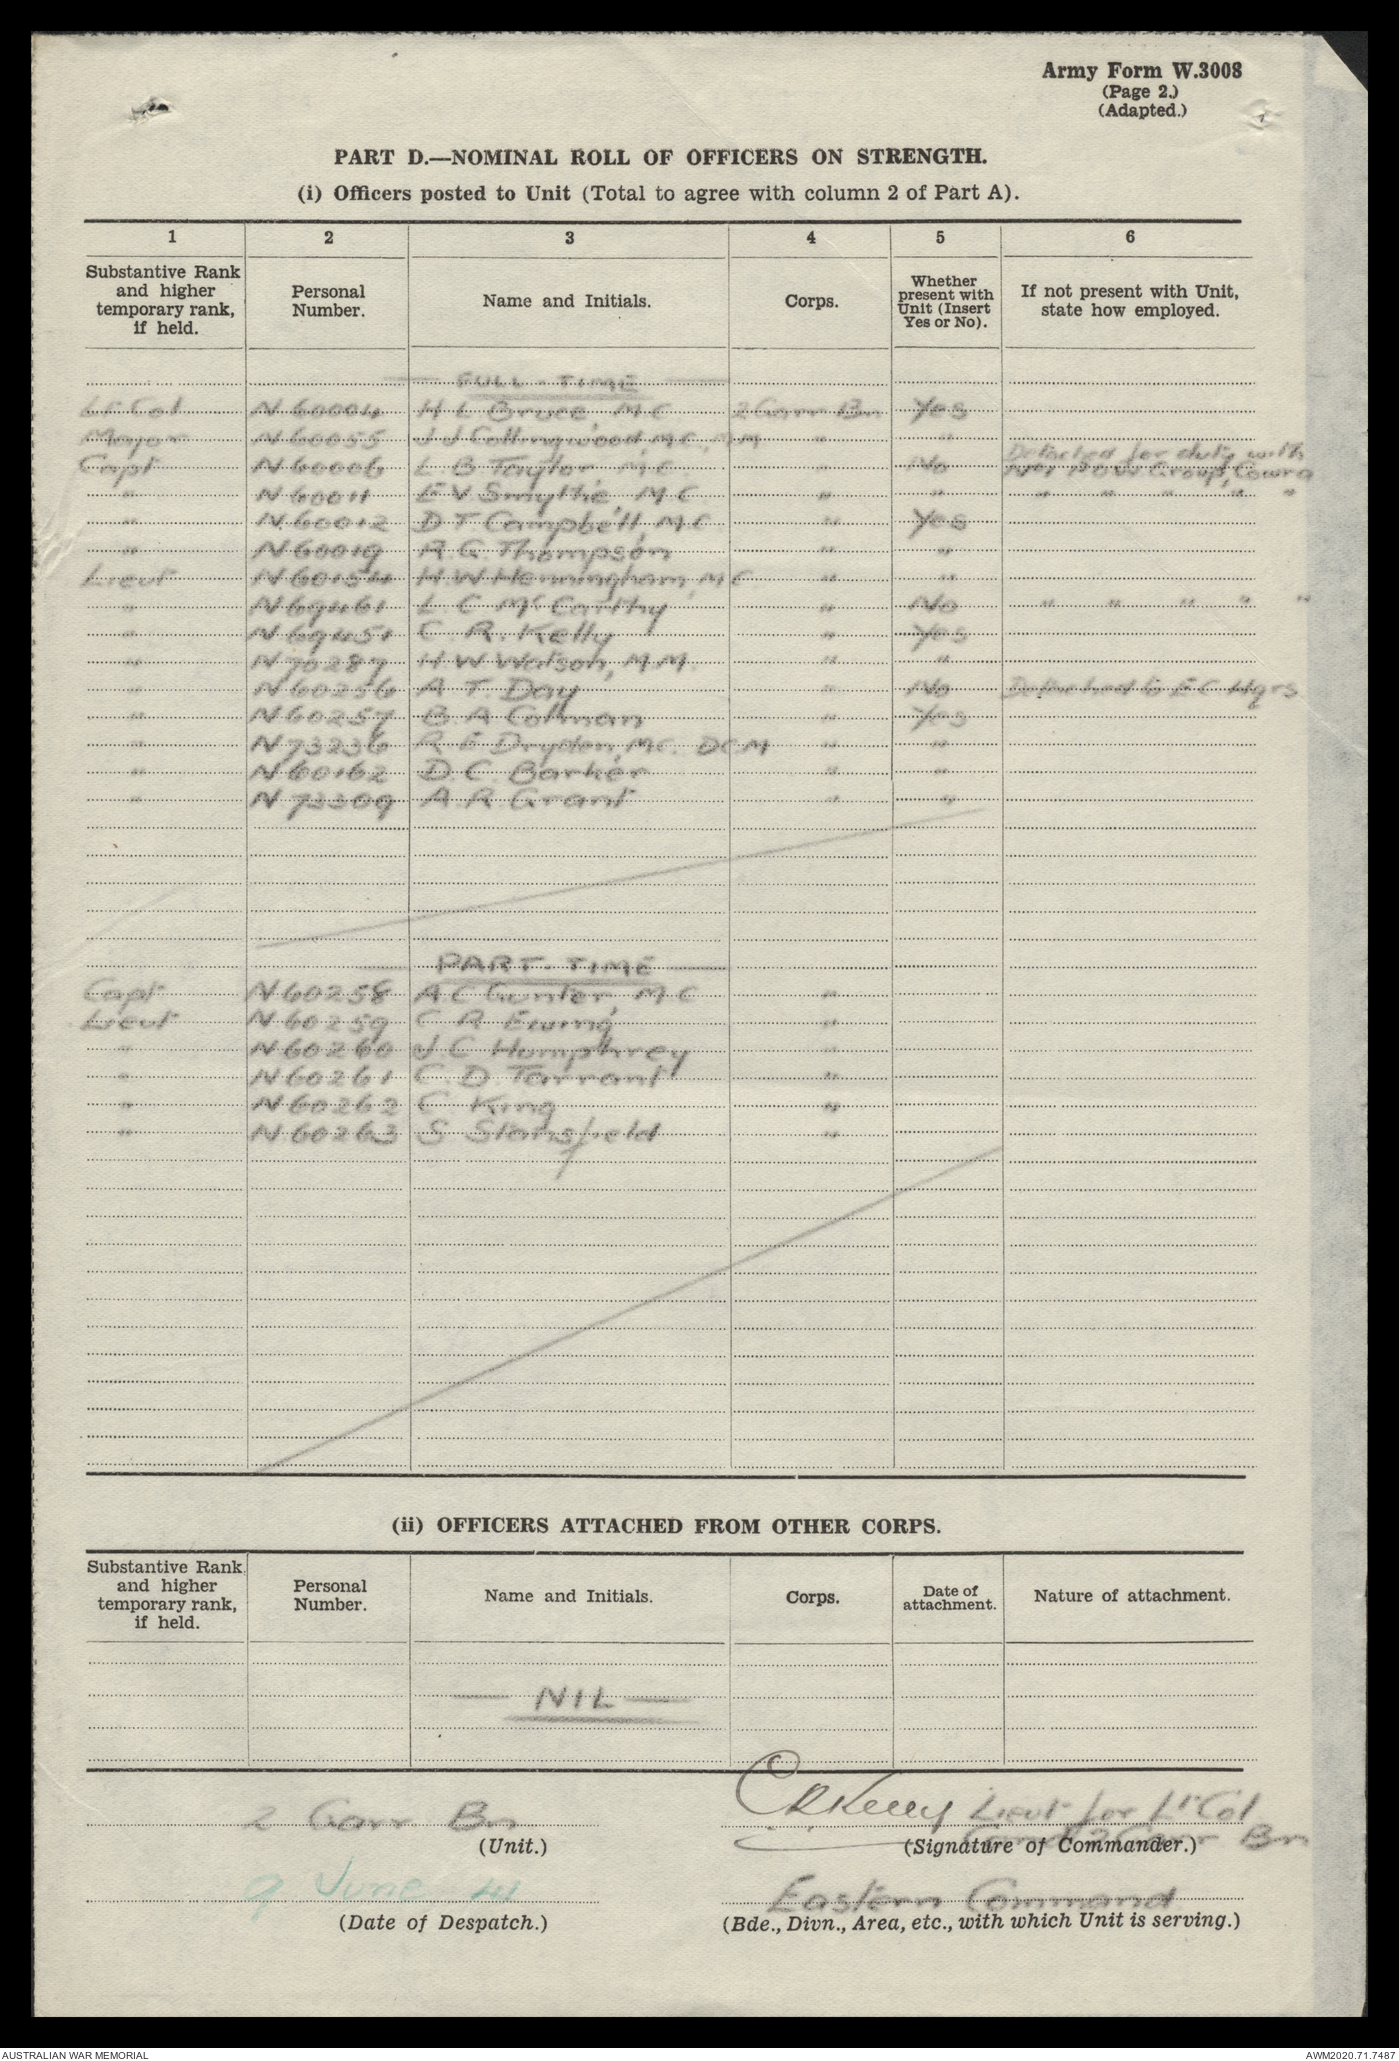 Army Form W.3008
(Page 2.)
(Adapted.)
PART D.—NOMINAL ROLL OF OFFICERS ON STRENGTH.
(i) Officers posted to Unit (Total to agree with column 2 of Part A).
1 2 3 4 5 6
Substantive Rank and higher temporary rank, if held. Personal Number. Name and Initials. Corps. Whether present with Unit (Insert Yes or No). If not present with Unit, state how employed.
— FULL-TIME —
Lt Col N 60004 H L Bruce M C 2 Garr Bn Yes
Major N 60055 J J Collingwood M.C., M M " "
Capt N 60006 L B Taylor M.C. " No Detached for duty with No1 P.O.W Group, Cowra
" N 60011 E V Smythe, M C " " " " " " "
" N 60012 D T Campbell, M C " Yes
" N 60019 R. G. Thompson " "
Lieut N 60154 H.W Henningham, M C " "
" N 69461 L C McCarthy " No " " " " "
" N 69451 C. R. Kelly " Yes
" N 70287 H W Watson, M.M. " "
" N 60256 A T. Day " No Detached to E C Hqrs
" N 60257 B. A Colman " Yes
" N 73236 R E Dryden, M.C. DCM " "
" N 60162 D. C. Barker " "
" N 73309 A R Grant " "
— PART-TIME —
Capt N 60258 A C Gunter M C "
Lieut N 60259 C R Ewing "
" N 60260 J. C Humphrey "
" N 60261 C. D. Tarrant "
" N 60262 C King "
" N 60263 S Stansfield "
(ii) OFFICERS ATTACHED FROM OTHER CORPS.
Substantive Rank and higher temporary rank, if held. Personal Number. Name and Initials. Corps. Date of attachment. Nature of attachment.
— NIL —
2 Garr Bn C R Kelly Lieut for Lt Col
(Unit.) Comd 2 Garr Bn
(Signature of Commander.)
9 June 41 Eastern Command
(Date of Despatch.) (Bde., Divn., Area, etc., with which Unit is serving.)
AUSTRALIAN WAR MEMORIAL AWM2020.71.7487